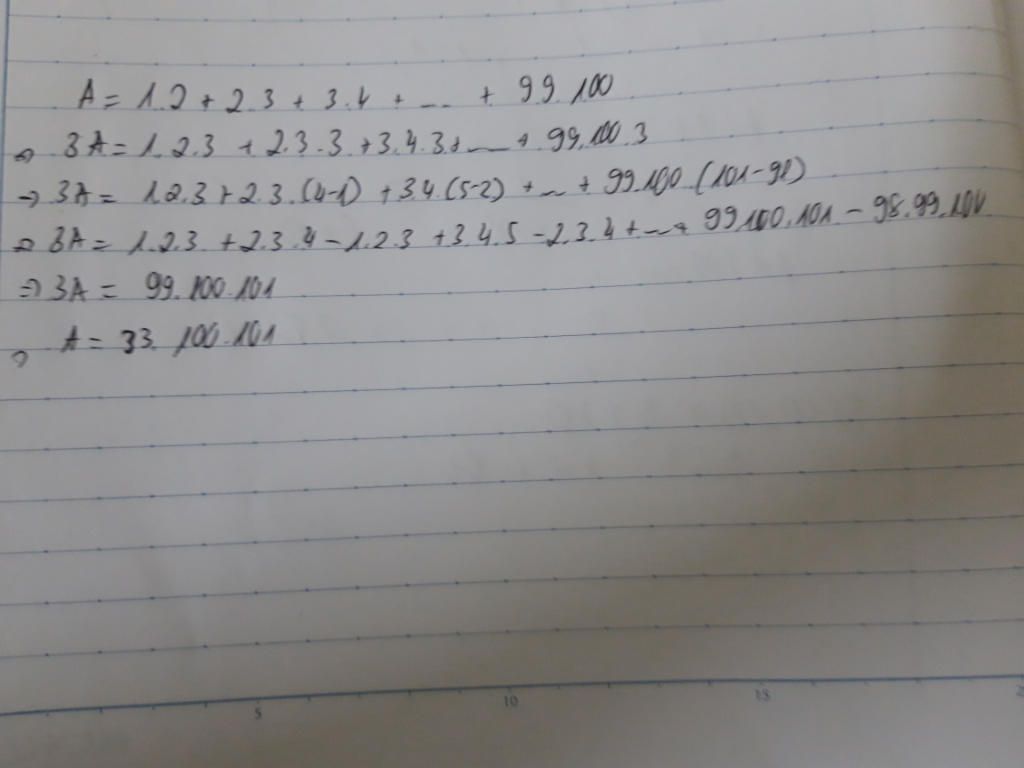 A = 1.2 + 2.3 + 3.4 + ... + 99.100
⇒ 3A = 1.2.3 + 2.3.3 + 3.4.3 + ... + 99.100.3
⇒ 3A = 1.2.3 + 2.3.(4-1) + 3.4.(5-2) + ... + 99.100.(101-98)
⇒ 3A = 1.2.3 + 2.3.4 - 1.2.3 + 3.4.5 - 2.3.4 + ... + 99.100.101 - 98.99.100
⇒ 3A = 99.100.101
⇒ A = 33.100.101
5 10 15